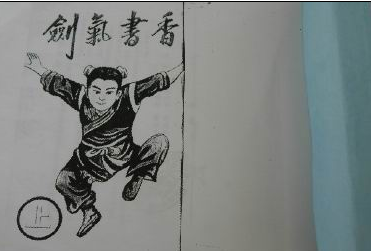 劍氣書香
上